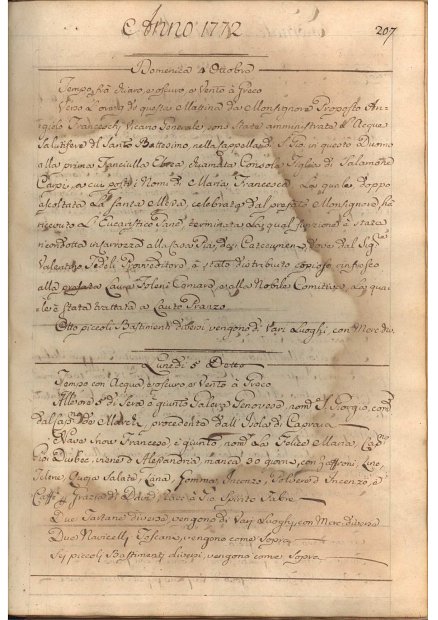 Anno 1772
207
Domenica 4 Ottobre
Tempo frà chiaro, e oscuro e Vento à Greco
Verso l'ora di questa Mattina da Monsignore Proposto An-
giolo Franceschi Vicario Generale, sono state amministrate l' Acque
Salutifere del Santo Battesimo, nella Cappella di in questo Duomo
alla prima Fanciulla Ebrea chiamata Consola Figlia di Salamone
Carpi, a cui posti i Nomi di Maria Francesca La quale doppo
ascoltata La Santa Messa, celebrata dal prefato Monsignore hà
ricevuto L' Eucaristico Pane, terminata La qual funzione è stata
ricondotta in Carrozza alla Casa Pia dei Catecumeni, dove dal Sig.
Valentino Fedeli Provveditore, è stato distribuito copioso rinfresco
alla Comare, e alla Nobile Comitiva, La qua
le è stata trattata a Lauto Pranzo
Otto piccoli Bastimenti diversi vengono di Vari Luoghi, con Merc. div.
Lunedi 5 Detto
Tempo con Acqua, e oscuro e Vento à Greco
Alle ore 5 di Sera è giunto Genovese, nom. S. Giorgio, com.
dal procedente dall' Isola di Capraia
Nave Francese, è giunto, nom. La Felice Maria, Cap.
viene d' Alessandria manca 30 giorni, con Zaffroni, Lino,
Telerie, Salate, Lana, Gomma, Incenzo, Polvere d' Incenzo, e
Caffè,
Due Tartane diverse, vengono di Varj Luoghi, con Merc. diverse
Due Navicelli Toscani, vengono come Sopra
Sei piccoli Bastimenti diversi, vengono come Sopra